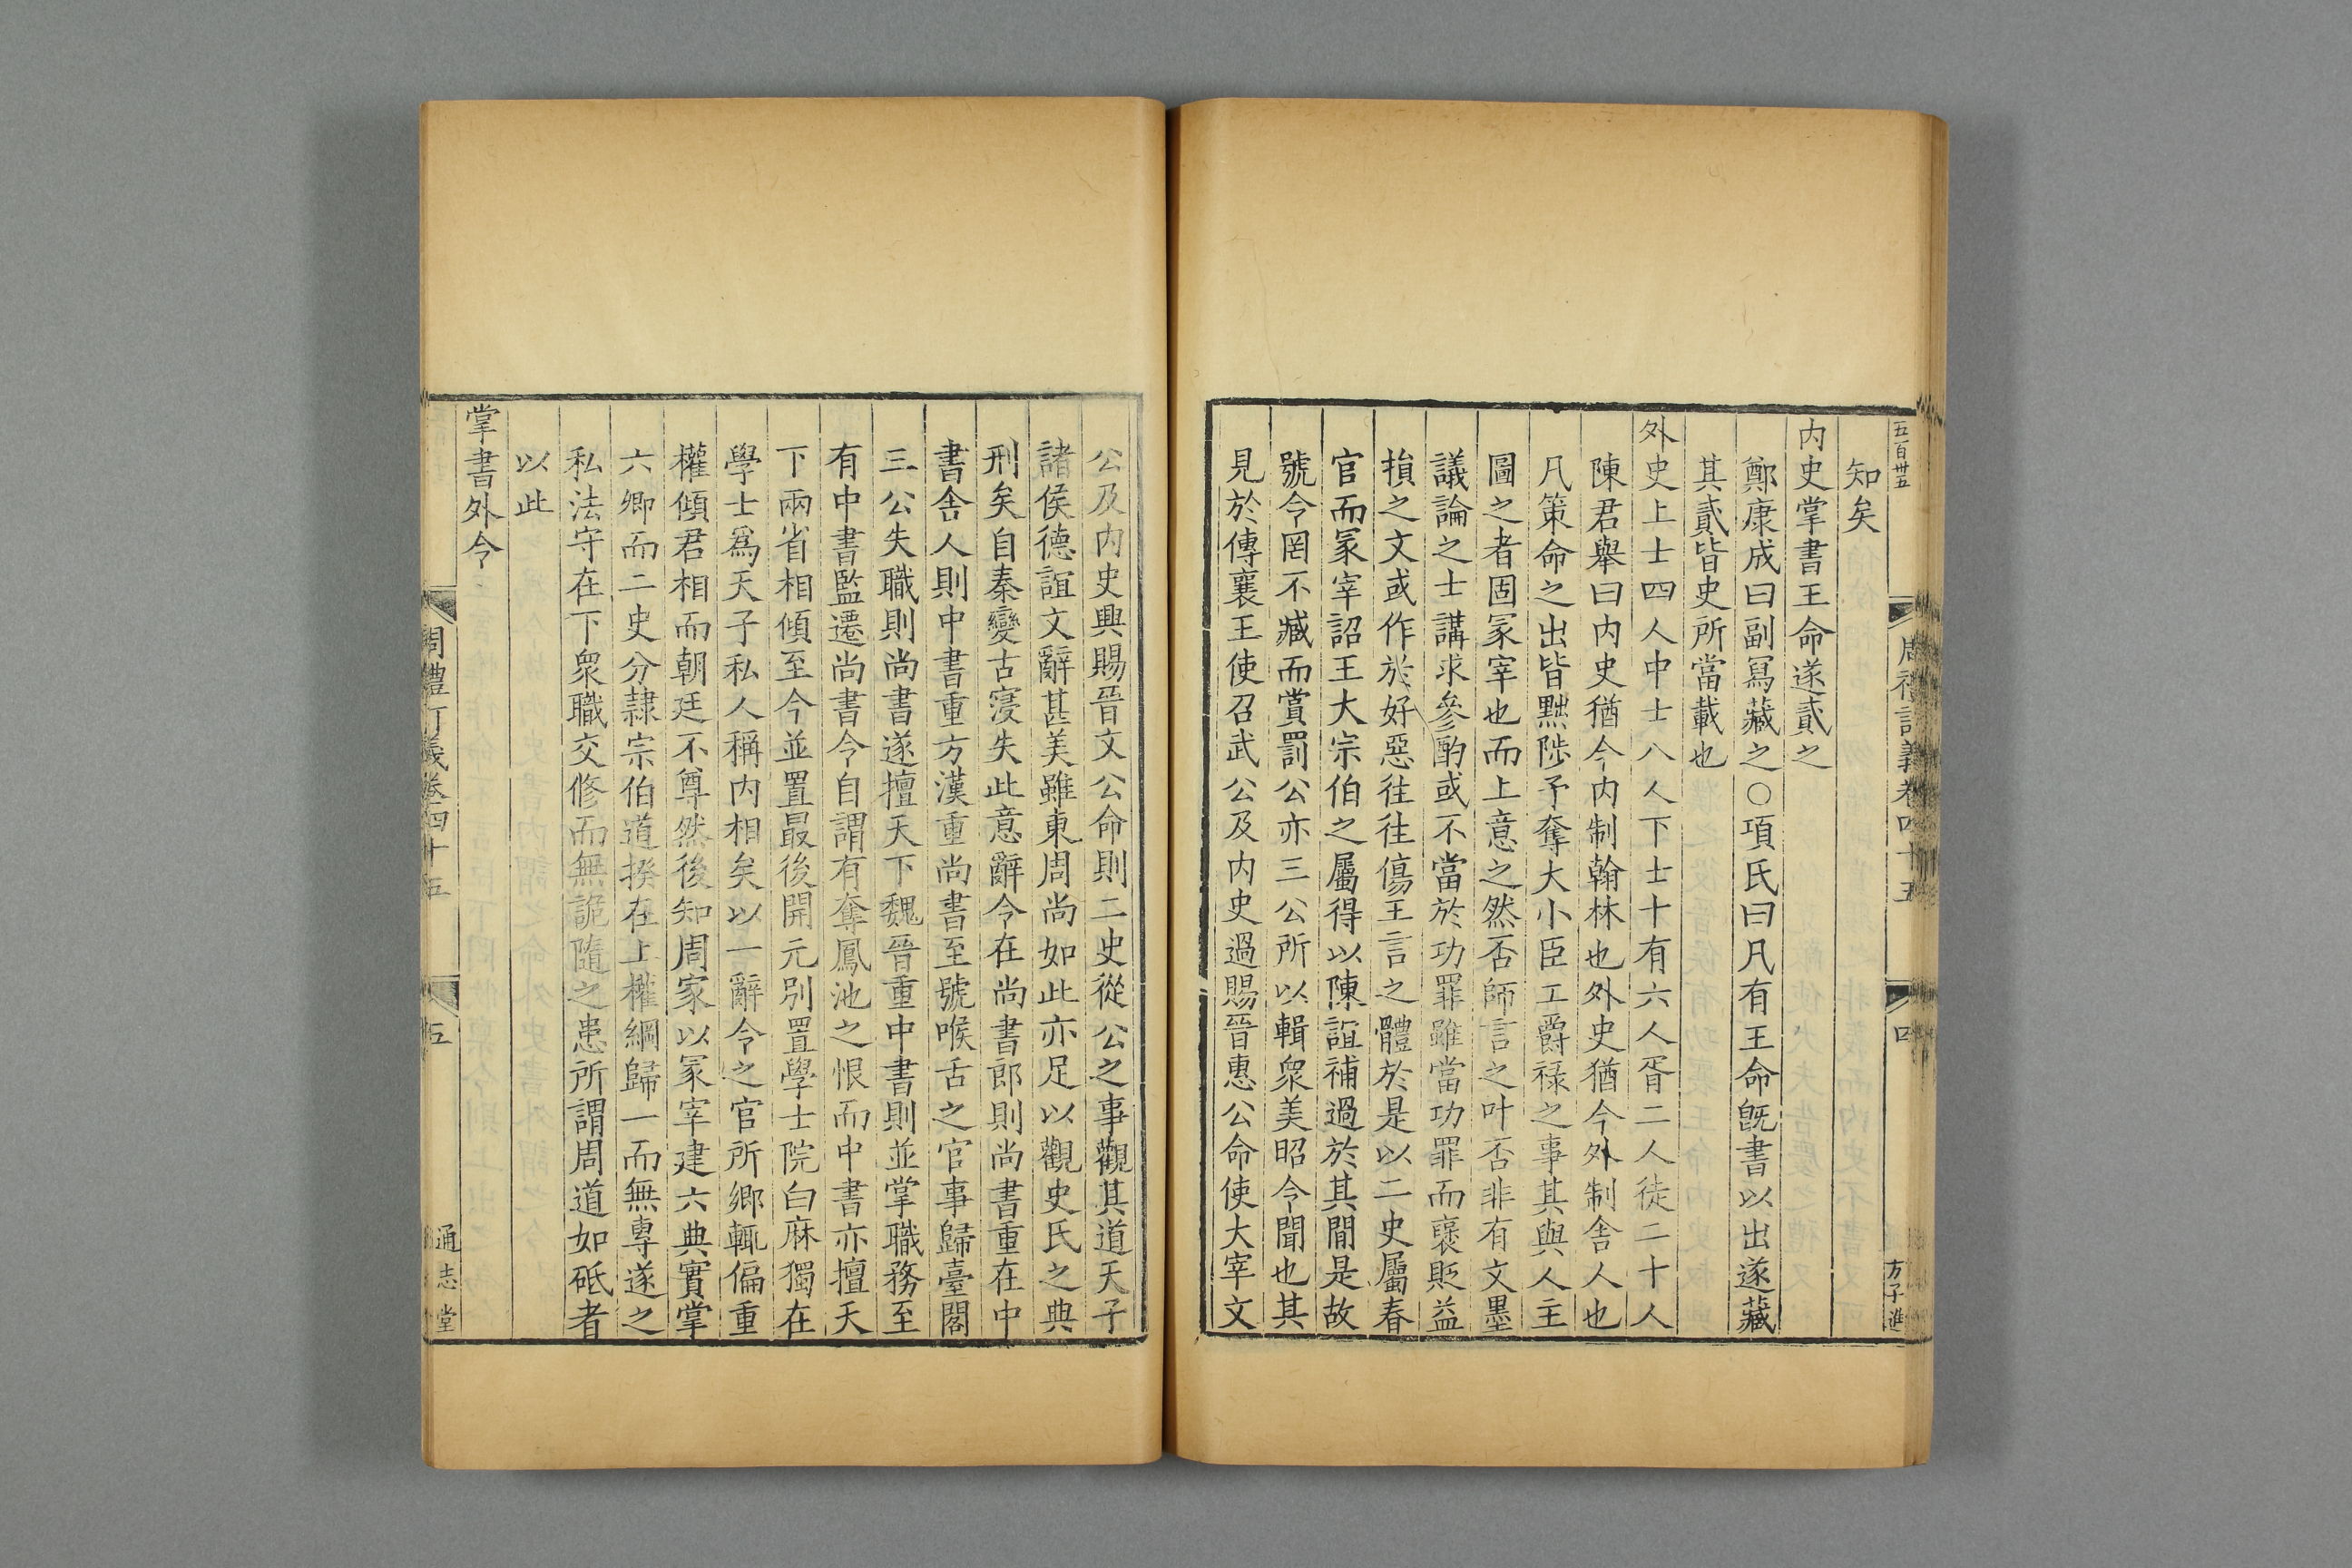 五百卅五
周禮訂義卷四十五
四
方子進
知矣
内史掌書王命遂貳之
鄭康成曰副冩藏之○項氏曰凡有王命旣書以出遂藏
其貳皆史所當載也
外史上士四人中士八人下士十有六人胥二人徒二十人
陳君舉曰内史猶今内制翰林也外史猶今外制舎人也
凡策命之出皆黜陟予奪大小臣工爵禄之事其與人主
圖之者固冢宰也而上意之然否師言之叶否非有文墨
議論之士講求參酌或不當於功罪雖當功罪而襃貶益
損之文或作於好惡往往傷王言之體於是以二史屬春
官而冢宰詔王大宗伯之屬得以陳誼補過於其閒是故
號令罔不臧而賞罰公亦三公所以輯衆美昭令聞也其
見於傳襄王使召武公及内史過賜晉惠公命使大宰文
公及内史興賜晉文公命則二史從公之事觀其道天子
諸侯德誼文辭甚美雖東周尚如此亦足以觀史氏之典
刑矣自秦變古寖失此意辭令在尚書郎則尚書重在中
書舎人則中書重方漢重尚書至號喉舌之官事歸臺閣
三公失職則尚書遂擅天下魏晉重中書則並掌職務至
有中書監遷尚書令自謂有奪鳳池之恨而中書亦擅天
下兩省相傾至今並置最後開元别置學士院白麻獨在
學士爲天子私人稱内相矣以一辭令之官所鄉輒偏重
權傾君相而朝廷不尊然後知周家以冢宰建六典實掌
六卿而二史分隷宗伯道揆在上權綱歸一而無專遂之
私法守在下衆職交修而無詭隨之患所謂周道如砥者
以此
掌書外令
周禮訂義卷四十五
五
通志堂